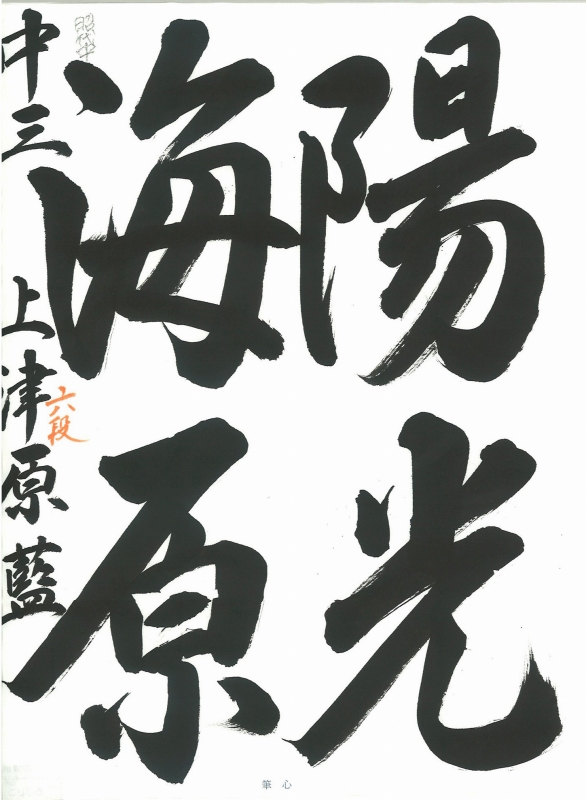 陽光
海原
中三 上津原藍
六段
昭代中
筆心